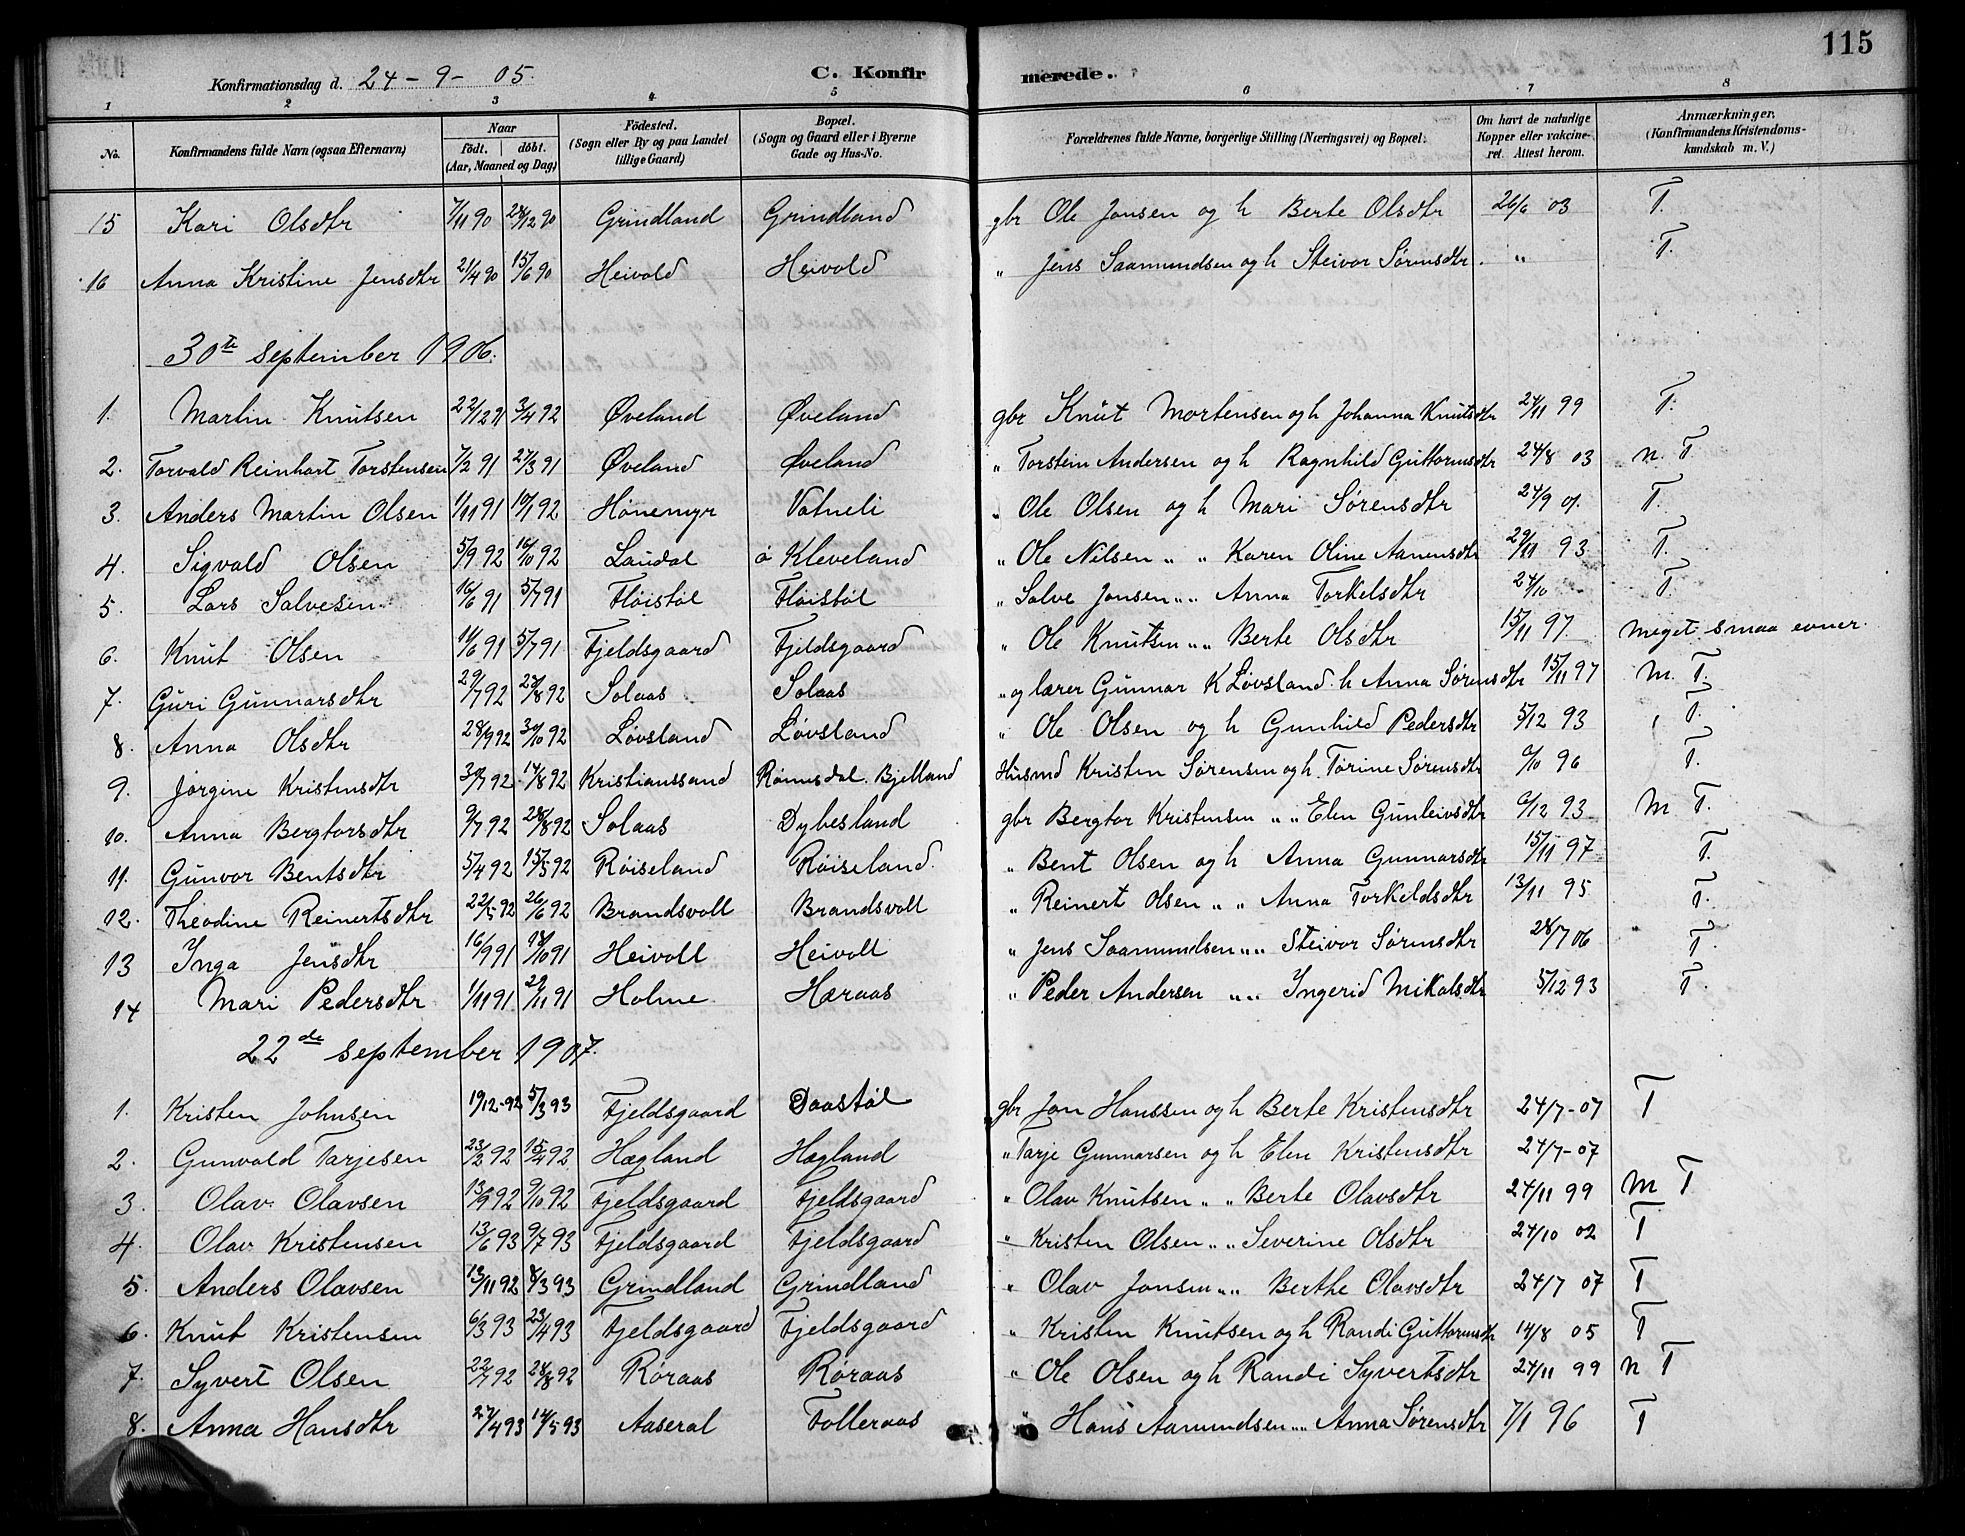 115
Konfirmationsdag d. 24 - 9 - 05. C. Konfir merede.
1 2 3 4 5 6 7 8
No. Konfirmandens fulde Navn (ogsaa Efternavn) Naar Födt. döbt. (Aar, Maaned og Dag) Födested. (Sogn eller By og paa Landet tillige Gaard) Bopæl. (Sogn og Gaard eller i Byerne Gade og Hus-No. Forældrenes fulde Navne, borgerlige Stilling (Næringsvei) og Bopæl. Om havt de naturlige Kopper eller vakcineret. Attest herom. Anmærkninger. (Konfirmandens Kristendomskundskab m. V.)
15 Kari Olsdtr 7/11 90 28/12 90 Grindland Grindland gbr Ole Jonsen og h Berte Olsdtr 26/6 03 T.
16 Anna Kristine Jensdtr 21/4 90 15/6 90 Heivold Heivold " Jens Saamundsen og h Steivor Sørensdtr. " T.
30te september 1906.
1. Martin Knutsen 22/12 91 3/4 92 Øveland Øveland gbr Knut Mortensen og h Johanna Knutsdtr 24/11 99 T.
2. Torvald Reinhart Torstensen 7/2 91 27/3 91 Øveland Øveland " Torstein Andersen og h Ragnhild Guttormsdtr 24/8 03 n. T
3. Anders Martin Olsen 1/11 91 10/1 92 Hønemyr Vatneli " Ole Olsen og h Mari Sørensdtr 24/9 01. T.
4. Sigvald Olsen 5/9 92 16/10 92 Laudal ø Kleveland " Ole Nilsen " " Karen Oline Aanensdtr 29/11 93 T.
5. Lars Salvesen 16/6 91 5/7 91 Fløistøl Fløistøl " Salve Jonsen " " Anna Torkelsdtr 24/10 T.
6. Knut Olsen 11/6 91 5/7 91 Fjeldsgaard Fjeldsgaard " Ole Knutsen " " Berte Olsdtr 15/11 97 Meget smaa evner.
7. Guri Gunnarsdtr 29/7 92 28/8 92 Solaas Solaas " og lærer Gunnar K Løvsland h Anna Sørensdtr 15/11 97 M. T.
8. Anna Olsdtr 28/9 92 30/10 92 Løvsland Løvsland " Ole Olsen og h Gunhild Pedersdtr 5/12 93 T.
9. Jørgine Kristensdtr 30/7 92 14/8 92 Kristianssand Rømesdal. Bjelland Husmd Kristen Sørensen og h Torine Sørensdtr 9/10 96 T.
10. Anna Bergtorsdtr 9/7 92 28/8 92 Solaas Dybesland gbr Bergtor Kristensen " " Elen Gunleivsdtr 9/12 93 M T.
11. Gunvor Bentsdtr 5/4 92 15/5 92 Røiseland Røiseland " Bent Olsen og h Anna Gunnarsdtr 15/11 97 T.
12. Theodine Reinertsdtr 22/5 92 26/6 92 Brandsvoll Brandsvolt " Reinert Olsen " " Anna Torkeldsdtr 13/11 95 T.
13 Inga Jensdtr 16/9 91 18/10 91 Heivoll Heivolt " Jens Saamundsen " " Steivor Sørensdtr 28/7 06 T.
14 Mari Pedersdtr 1/11 91 29/11 91 Holme Hæraas " Peder Andersen " " Ingerid Mikalsdtr 5/12 93 T.
22de september 1907.
1. Kristen Johnsen 19/12-92 5/3 93 Fjeldsgaard Daastøl gbr Jon Hanssen og h Berte Kristensdtr 24/7-07 T
2. Gunvald Tarjesen 23/2 92 15/4 92 Hægland Hægland " Tarje Gunnarsen og h Elen Kristensdtr 24/7-07
3. Olav Olavsen 13/9 92 9/10 92 Fjeldsgaard Fjeldsgaard " Olav Knutsen " " Berte Olavsdtr 24/11 99 M T
4. Olav Kristensen 13/6 93 9/7 93 Fjeldsgaard Fjeldsgaard " Kristen Olsen " " Severine Olsdtr 24/10 02 T
5. Anders Olavsen 13/11 92 8/3 93 Grindland Grindland " Olav Jonsen " " Berthe Olavsdtr 24/7 07 T
6. Knut Kristensen 6/3 93 23/4 93 Fjeldsgaard Fjeldsgaard " Kristen Knutsen og h Randi Guttormsdtr 14/8 05 T
7. Syvert Olsen 22/7 92 28/8 92 Røraas Røraas " Ole Olsen og h Randi Syvertsdtr 24/11 99 n T
8. Anna Hansdtr 27/4 93 14/5 93 Aaseral Tolleraas " Hans Aamundsen " " Anna Sørensdtr 7/1 96 T